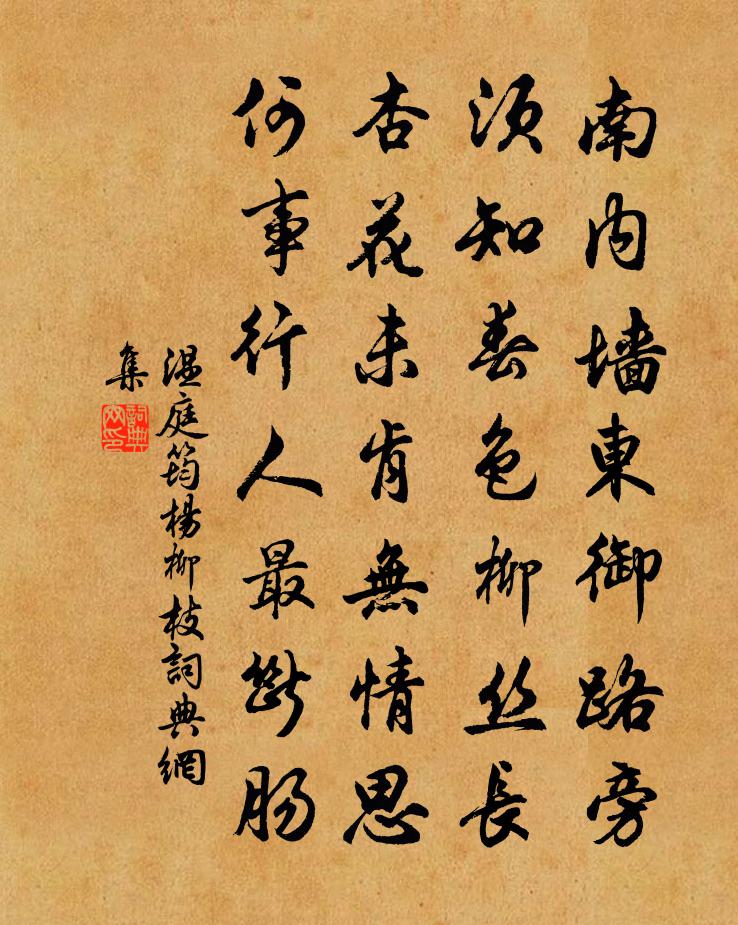 南内墻東御路旁
須知春色柳丝長
杏花未肯無情思
何事行人最斷腸
温庭筠楊柳枝詞典網
集
詞典
网印